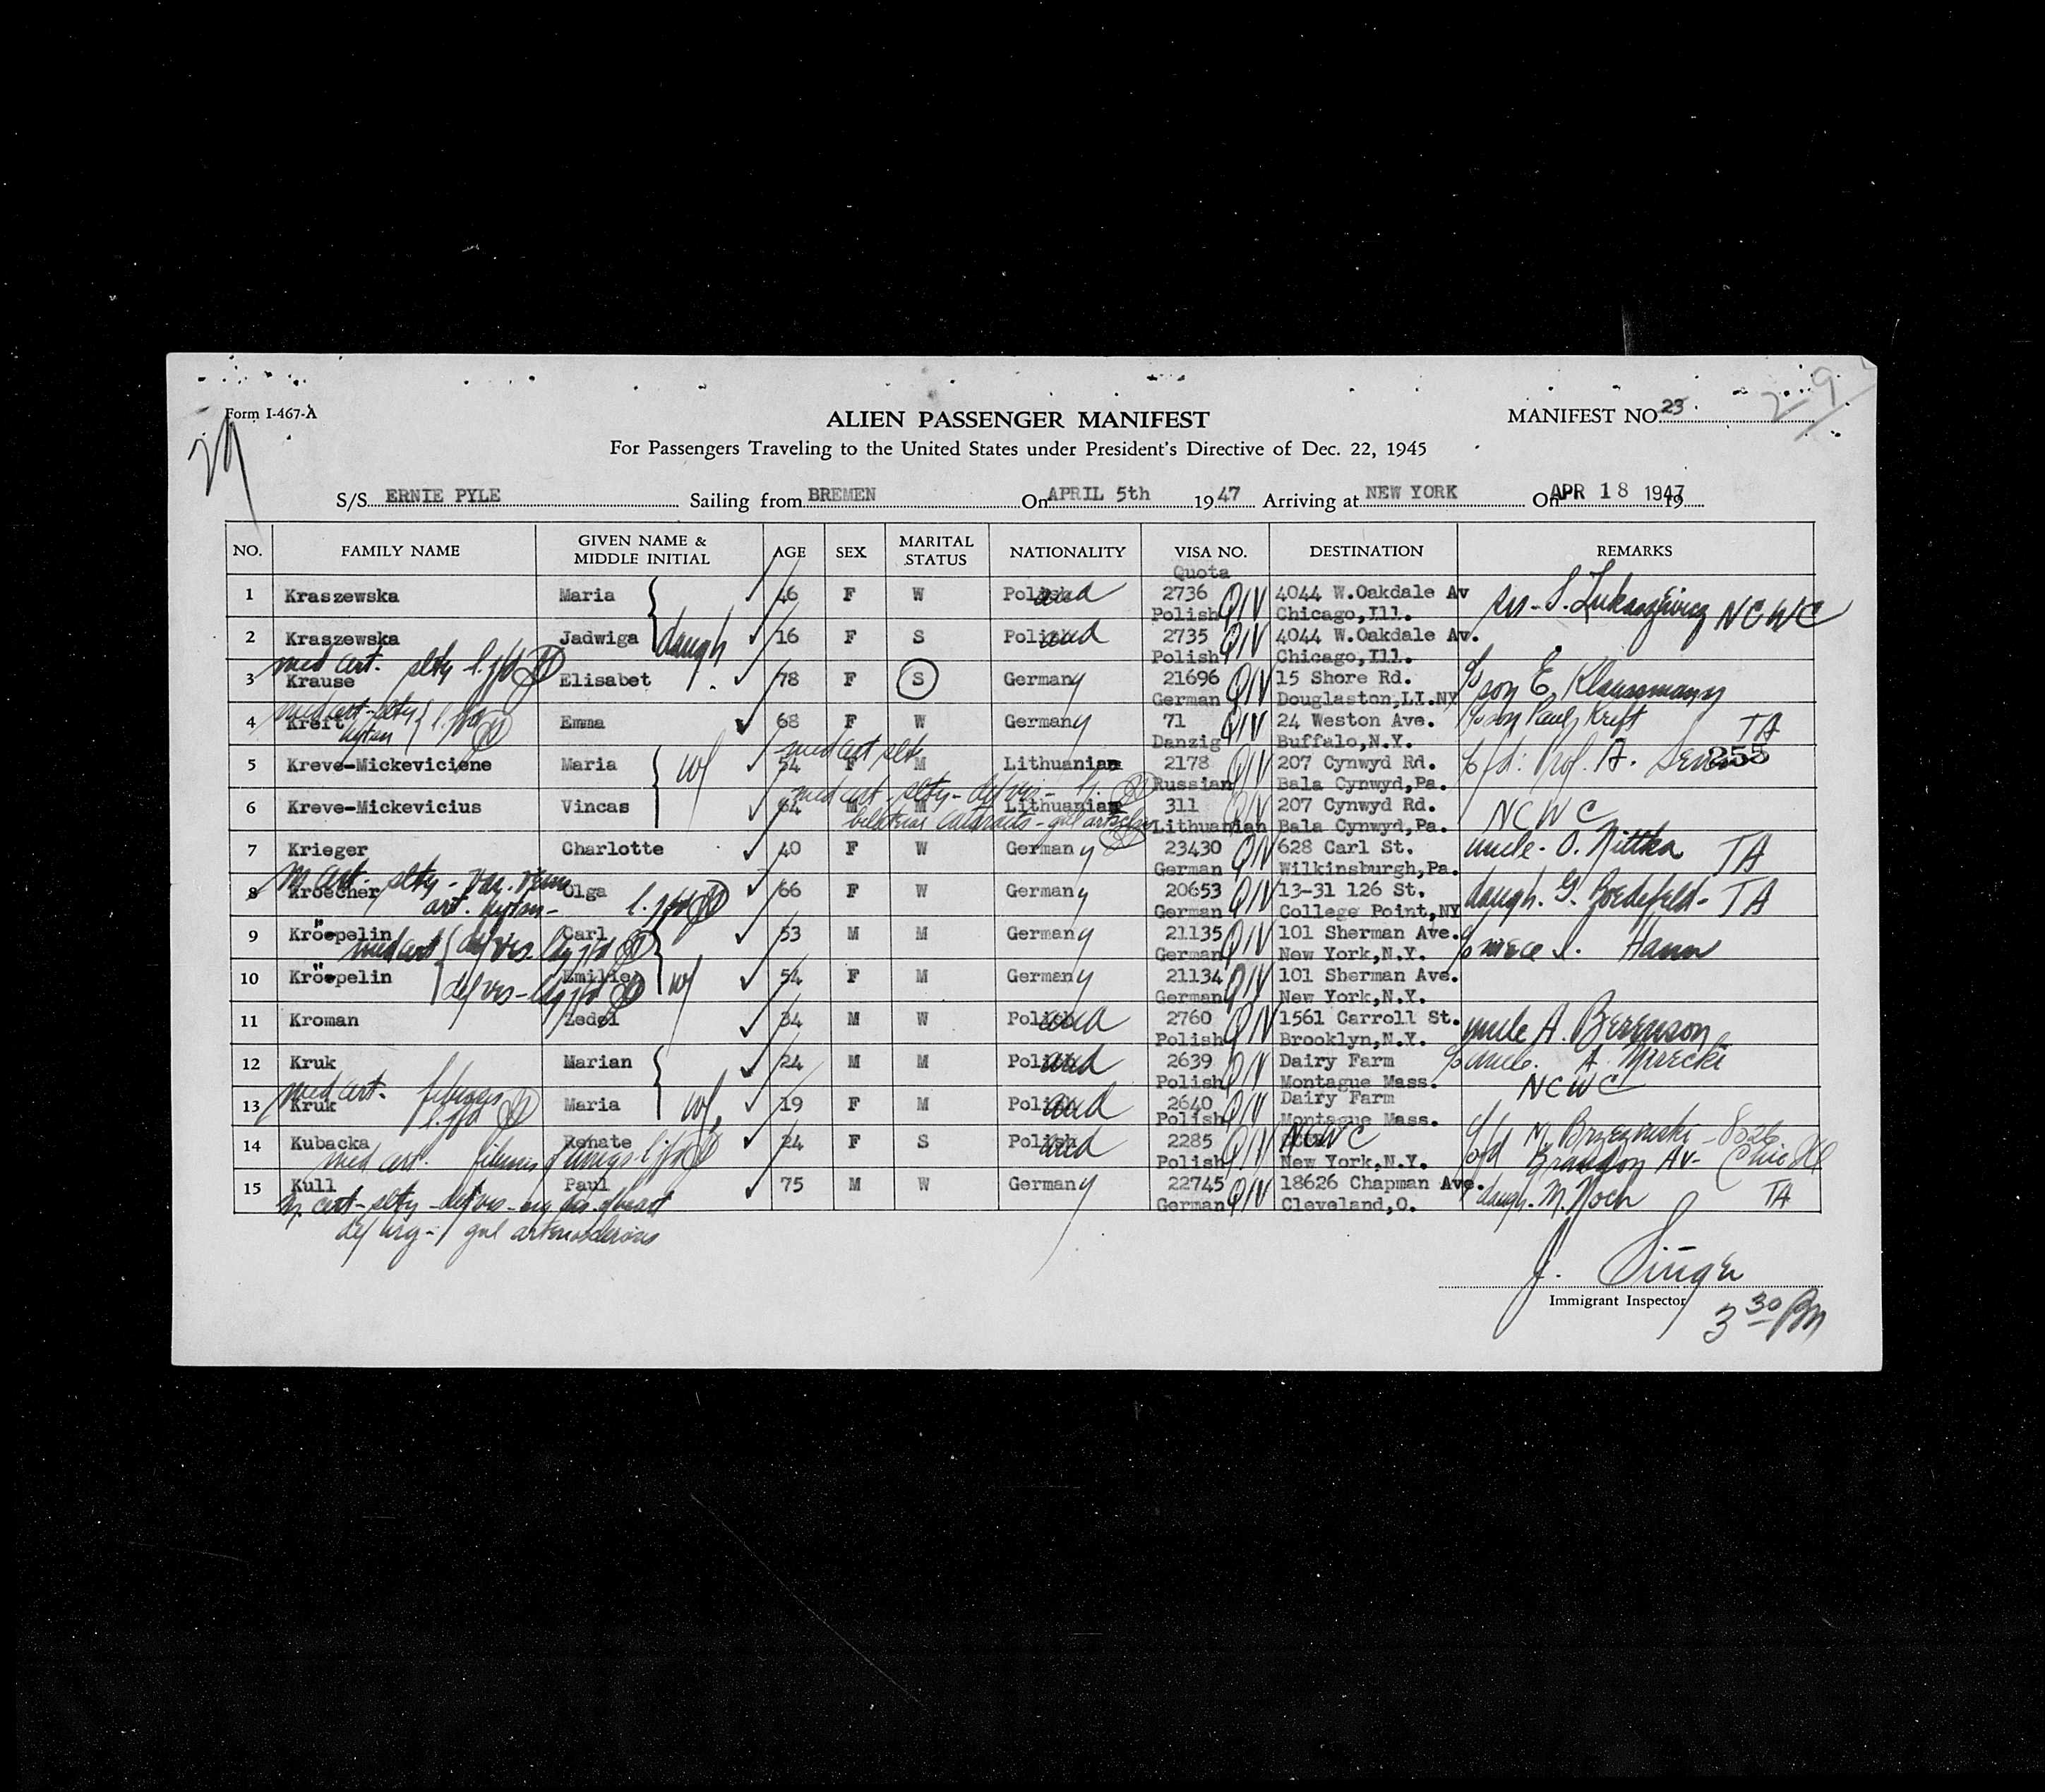 Form I-467-A
29
ALIEN PASSENGER MANIFEST
MANIFEST NO. 23
29
For Passengers Traveling to the United States under President's Directive of Dec. 22, 1945
S/S ERNIE PYLE Sailing from BREMEN On APRIL 5th 1947 Arriving at NEW YORK On APR 18 1947 19
NO. FAMILY NAME GIVEN NAME & MIDDLE INITIAL AGE SEX MARITAL STATUS NATIONALITY VISA NO. DESTINATION REMARKS
Quota
1 Kraszewska Maria 46 F W Poland 2736 QIV 4044 W.Oakdale Av
Polish Chicago,Ill. NCWC
2 Kraszewska Jadwiga daugh 16 F S Poland 2735 QIV 4044 W.Oakdale Av.
Polish Chicago,Ill.
med cert. slty
3 Krause Elisabet 78 F S Germany 21696 QIV 15 Shore Rd. son E. Klaussmann
German Douglaston,LI.NY
med cert - slty
4 Kreft Emma 68 F W Germany 71 QIV 24 Weston Ave. son Paul Kreft TA
Danzig Buffalo,N.Y.
med cert slty
5 Kreve-Mickeviciene Maria wf 54 F M Lithuania 2178 QIV 207 Cynwyd Rd. c/o fd: Prof. A. Senn 255
Russian Bala Cynwyd,Pa.
med cert - slty - def vis -
6 Kreve-Mickevicius Vincas 64 M M Lithuania 311 QIV 207 Cynwyd Rd. NCWC
bilateral cataracts - gnl
Lithuanian Bala Cynwyd,Pa.
7 Krieger Charlotte 40 F W Germany 23430 QIV 628 Carl St. uncle - O. Nittka TA
German Wilkinsburgh,Pa.
m cert - slty - var. veins
8 Kroecher Olga 66 F W Germany 20653 QIV 13-31 126 St. daugh. G. Boedefeld - TA
art. hyten -
German College Point,NY
9 Kröepelin Carl 53 M M Germany 21135 QIV 101 Sherman Ave. niece
med cert def vis
German New York,N.Y.
10 Kröepelin Emilie wf 54 F M Germany 21134 QIV 101 Sherman Ave.
def vis
German New York,N.Y.
11 Kroman Zedel 34 M W Poland 2760 QIV 1561 Carroll St. uncle A. Berenson
Polish Brooklyn,N.Y.
12 Kruk Marian 24 M M Poland 2639 QIV Dairy Farm c/o uncle. A. Mirecki
Polish Montague Mass. NCWC
med cert.
13 Kruk Maria wf. 19 F M Poland 2640 QIV Dairy Farm
Polish Montague Mass.
14 Kubacka Renate 24 F S Poland 2285 QIV NCWC c/o fd M. Brzezinski - 8526
med cert. fibrosis of lungs
Polish New York,N.Y. Brandon Av - Chic Ill
15 Kull Paul 75 M W Germany 22745 QIV 18626 Chapman Ave. daugh. M. Koch TA
m. cert - slty - def vis - of heart
German Cleveland,O.
gnl arteriosclerosis
J. Singer
Immigrant Inspector
3 30 PM